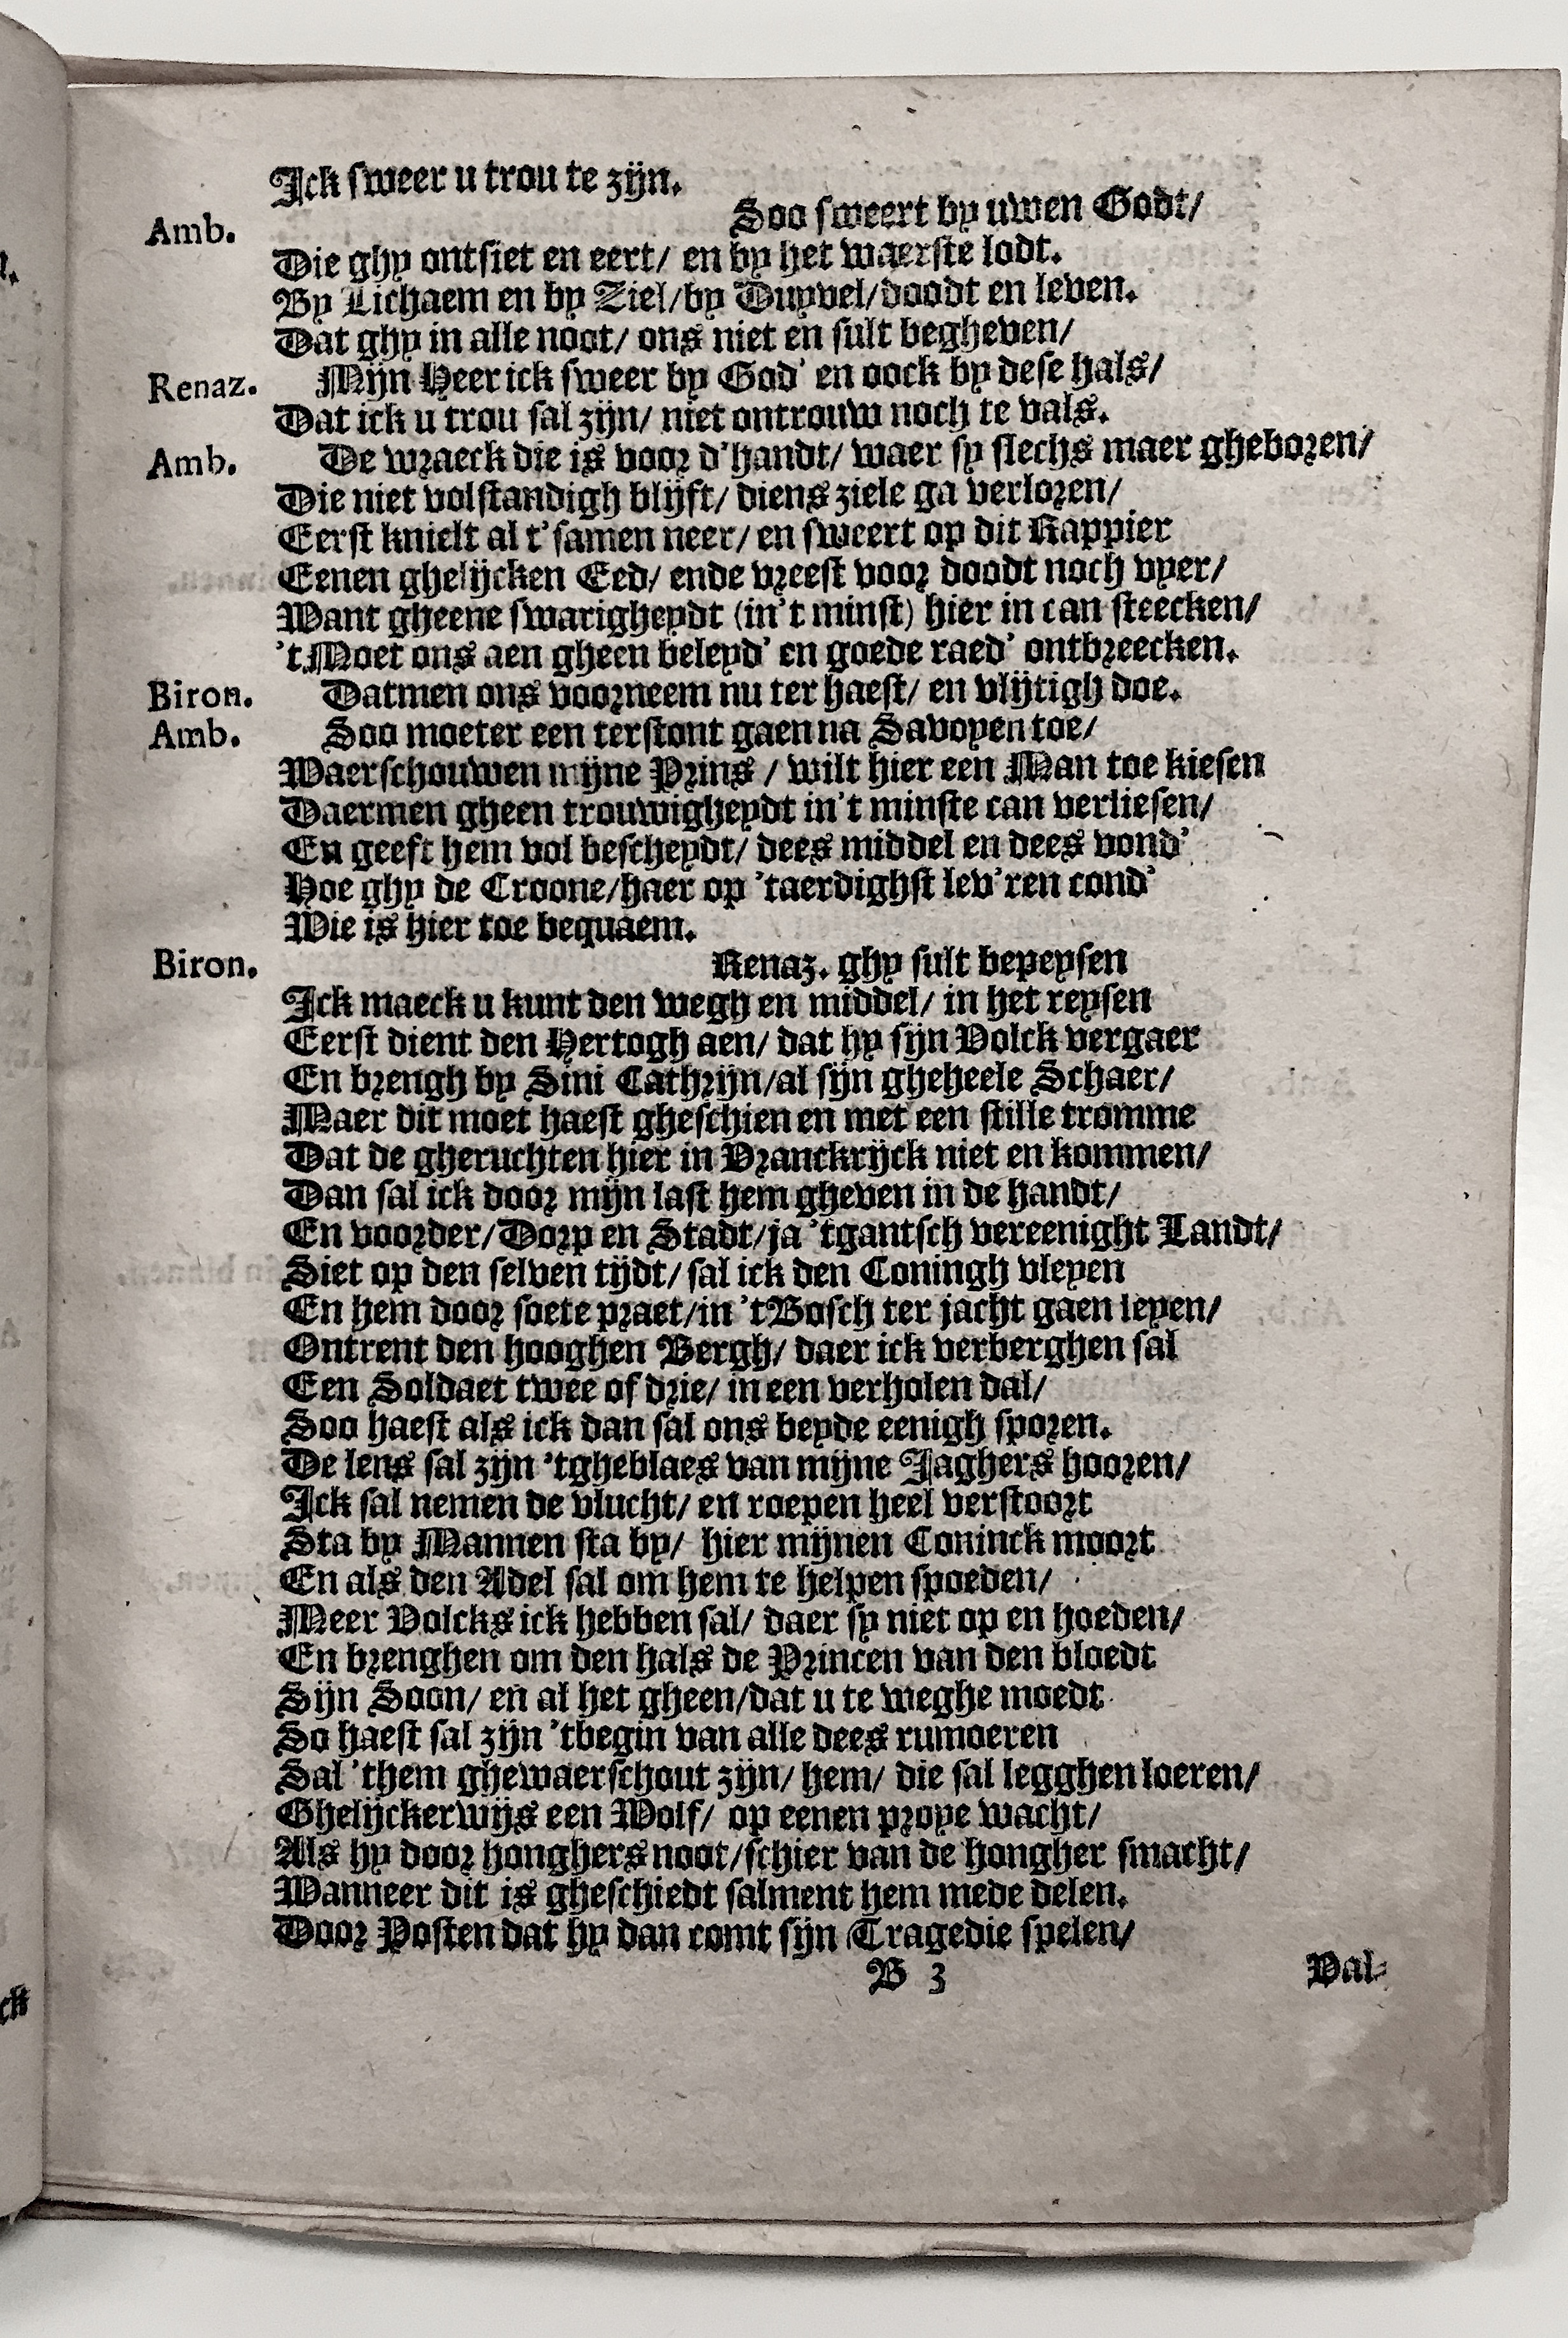 Ick sweer u trou te zijn.
Amb. Soo sweert by uwen Godt/
Die ghy ontsiet en eert/ en by het waerste lodt.
By Lichaem en by Ziel/by Duyvel/doodt en leven.
Dat ghy in alle noot/ ons niet en sult begheven/
Renaz. Mijn Heer ick sweer by God' en oock by dese hals/
Dat ick u trou sal zijn/ niet ontrouw noch te vals.
Amb. De wraeck die is voor d'handt/ waer sy slechs maer gheboren/
Die niet volstandigh blijft/ diens ziele ga verloren/
Eerst knielt al t'samen neer/ en sweert op dit Rappier
Eenen ghelijcken Eed/ ende vreest voor doodt noch vyer/
Want gheene swarigheydt (in't minst) hier in can steecken/
't Moet ons aen gheen beleyd' en goede raed' ontbreecken.
Biron. Datmen ons voorneem nu ter haest/ en vlijtigh doe.
Amb. Soo moeter een terstont gaen na Savoyen toe/
Waerschouwen mijne Prins / wilt hier een Man toe kiesen
Daermen gheen trouwigheydt in't minste can verliesen/
En geeft hem vol bescheydt/ dees middel en dees vond'
Hoe ghy de Croone/haer op 'taerdighst lev'ren cond'
Wie is hier toe bequaem.
Biron. Renaz. ghy sult bepeysen
Ick maeck u kunt den wegh en middel/ in het reysen
Eerst dient den Hertogh aen/ dat hy sijn Volck vergaer
En brengh by Sini Cathrijn/al sijn gheheele Schaer/
Maer dit moet haest gheschien en met een stille tromme
Dat de gheruchten hier in Vranckrijck niet en kommen/
Dan sal ick door mijn last hem gheven in de handt/
En voorder/Dorp en Stadt/ja 'tgantsch vereenight Landt/
Siet op den selven tijdt/ sal ick den Coningh vleyen
En hem door soete praet/in 't Bosch ter jacht gaen leyen/
Ontrent den hooghen Bergh/ daer ick verberghen sal
Een Soldaet twee of drie/ in een verholen dal/
Soo haest als ick dan sal ons beyde eenigh sporen.
De lens sal zijn 'tgheblaes van mijne Jaghers hooren/
Ick sal nemen de vlucht/ en roepen heel verstoort
Sta by Mannen sta by/ hier mijnen Coninck moort
En als den Adel sal om hem te helpen spoeden/
Meer Volcks ick hebben sal/ daer sy niet op en hoeden/
En brenghen om den hals de Princen van den bloedt
Sijn Soon/ en al het gheen/dat u te weghe moedt
So haest sal zijn 'tbegin van alle dees rumoeren
Sal 'them ghewaerschout zijn/ hem/ die sal legghen loeren/
Ghelijckerwijs een Wolf/ op eenen proye wacht/
Als hy door honghers noot/schier van de hongher smacht/
Wanneer dit is gheschiedt salment hem mede delen.
Door Posten dat hy dan comt sijn Tragedie spelen/
B 3 Val-